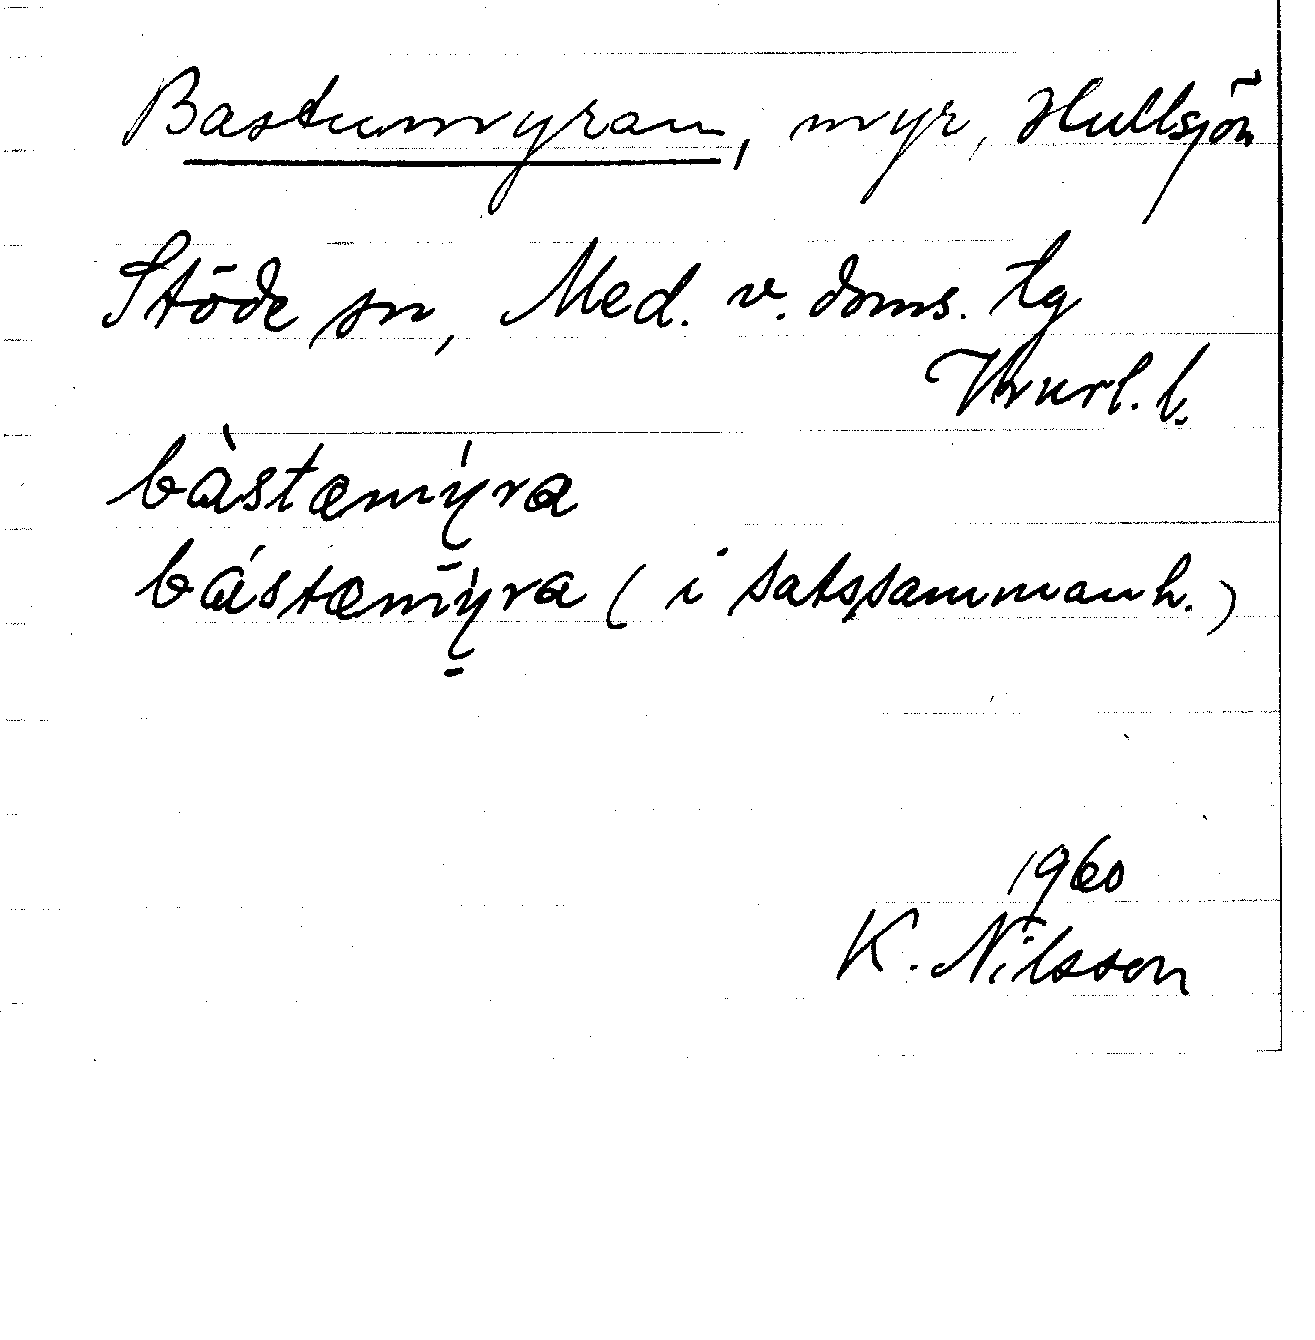 Bastumyran, myr, Hullsjön
Stöde sn, Med. v. doms. tg
l.
bàstæmýra
bástæmýra (i satssammanh.)
1960
K. Nilsson